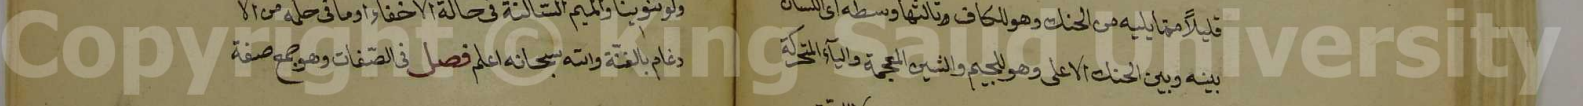 قليلاً مما يليه من الحنك وهو للكاف وثالثها وسطه اى اللسان
بينه وبين الحنك الاعلى وهو للجيم والشين المعجمة والياء المتحركة
ولو تنوينا والميم الساكنة فى حالة الاخفاء او ما فى حكمه من الا
دغام بالغنّة والله سبحانه اعلم فصل فى الصّفات وهو جمع صفة
Copyright © King Saud University